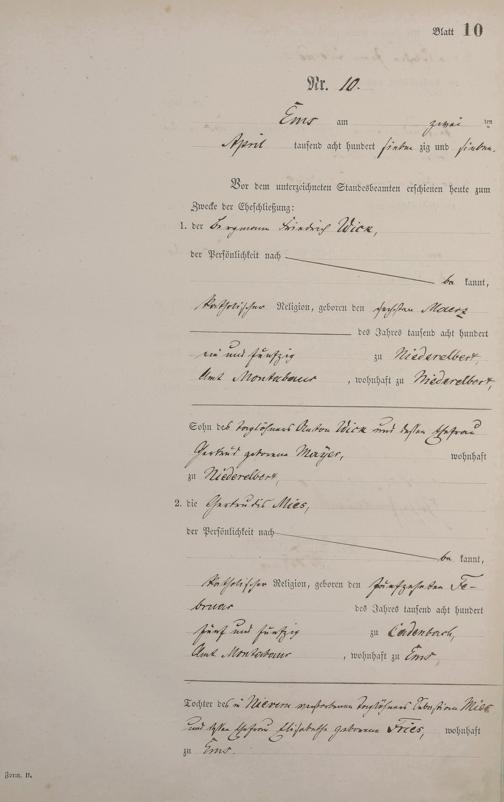 Blatt 10
Nr. 10.
Ems am zwei ten
April tausend acht hundert sieben zig und sieben.
Vor dem unterzeichneten Standesbeamten erschienen heute zum
Zwecke der Eheschließung:
1. der Bergmann Friedrich Wick,
der Persönlichkeit nach
be kannt,
katholischer Religion, geboren den sechsten Maerz
des Jahres tausend acht hundert
ein und fünfzig zu Niederelbert,
Amt Montabaur, wohnhaft zu Niederelbert,
Sohn des Taglöhners Anton Wick und dessen Ehefrau
Gertrud geborene Mayer, wohnhaft
zu Niederelbert,
2. die Gertrudis Mies,
der Persönlichkeit nach
be kannt,
katholischer Religion, geboren den fünfzehnten Fe-
bruar des Jahres tausend acht hundert
fünf und fünfzig zu Cadenbach,
Amt Montabaur, wohnhaft zu Ems,
Tochter des in Nievern verstorbenen Taglöhners Sebastian Mies
und Ehefrau Elisabetha geborene Fries, wohnhaft
zu Ems.
Form. B.